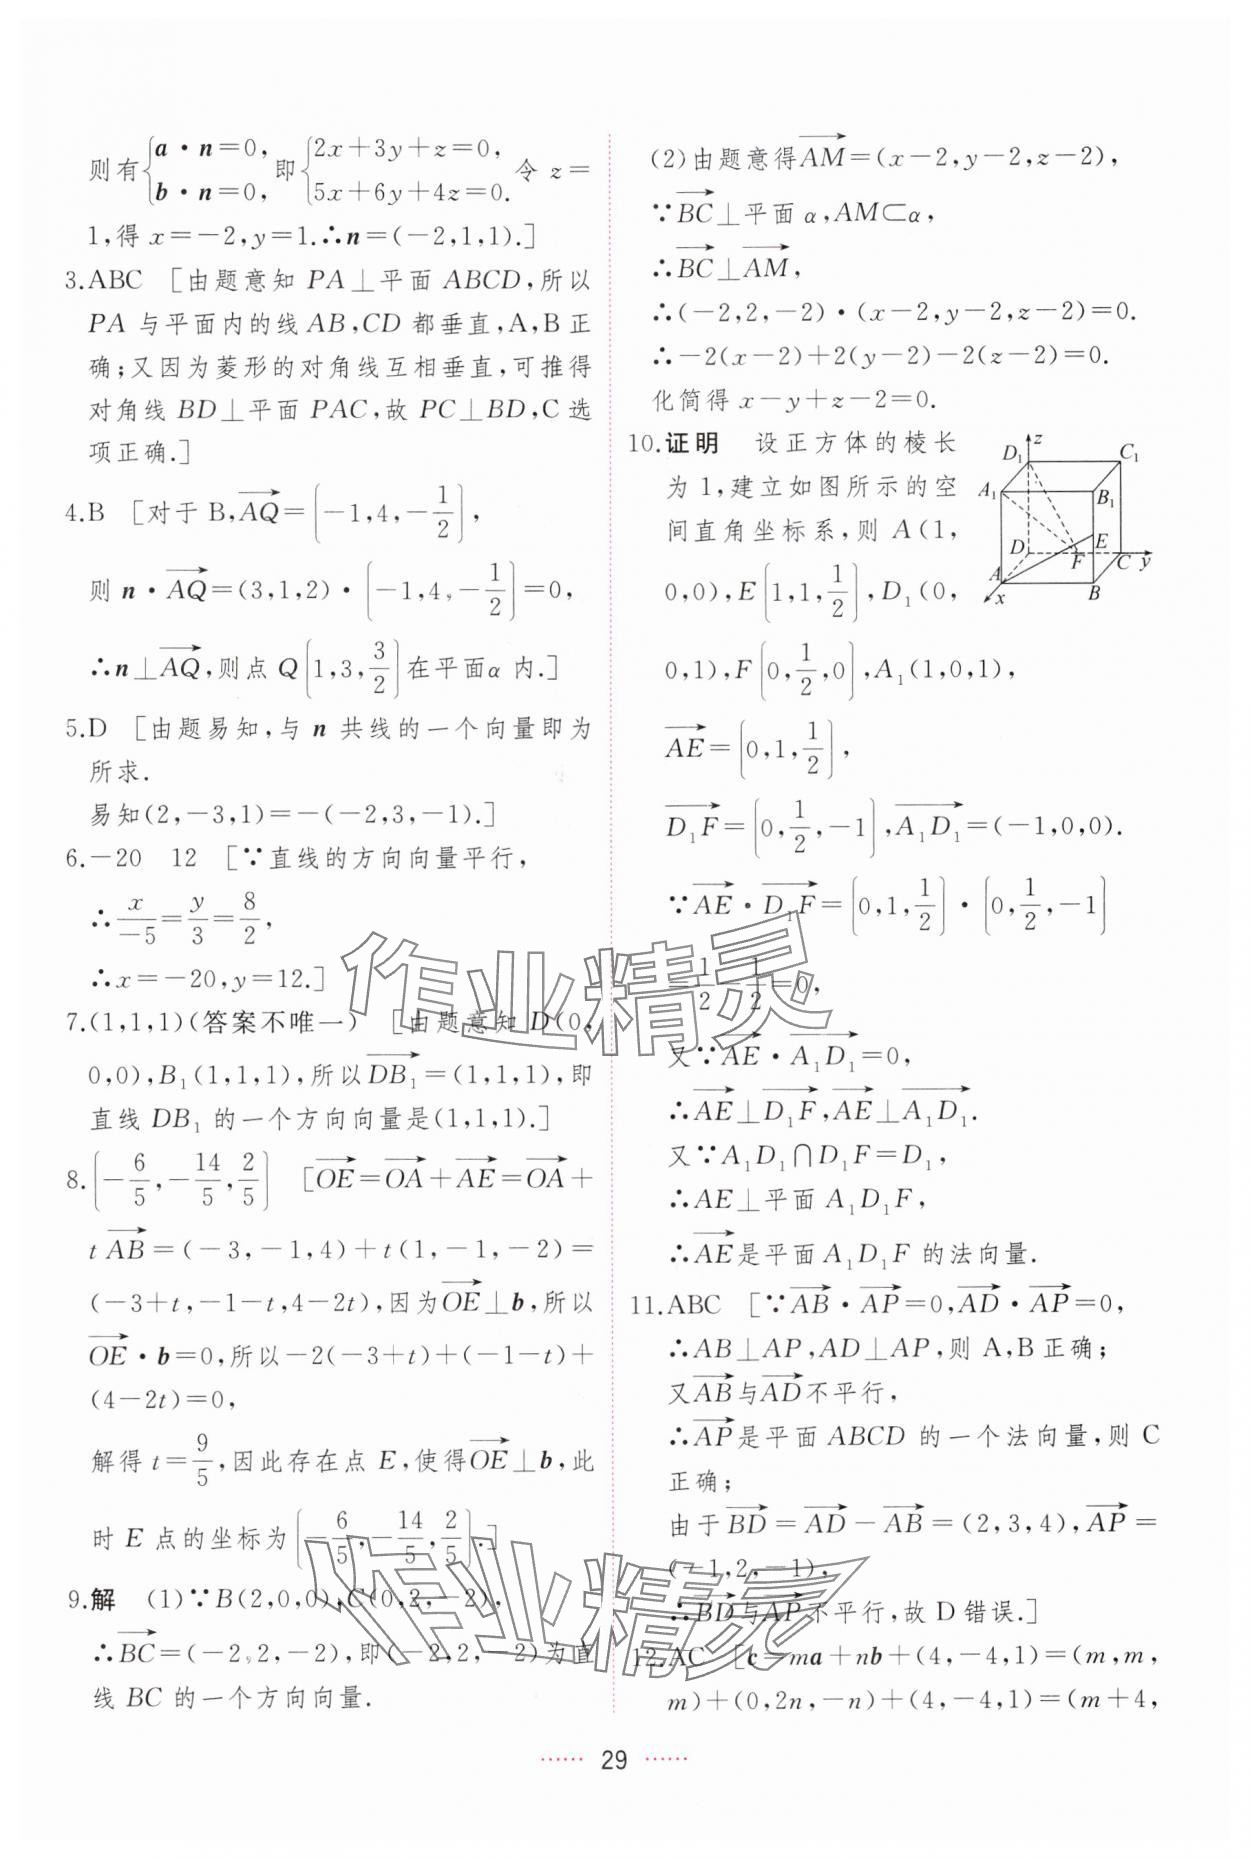 则有{a·n=0, b·n=0, 即{2x+3y+z=0, 5x+6y+4z=0. 令 z=
1,得 x=-2,y=1.∴n=(-2,1,1).]
3.ABC [由题意知 PA⊥平面 ABCD,所以
PA 与平面内的线 AB,CD 都垂直,A,B正
确;又因为菱形的对角线互相垂直,可推得
对角线 BD⊥平面 PAC,故 PC⊥BD,C选
项正确.]
4.B [对于 B,$\overrightarrow{AQ}=\left(-1,4,-\frac{1}{2}\right)$,
则 n·$\overrightarrow{AQ}=(3,1,2)·\left(-1,4,-\frac{1}{2}\right)=0$,
∴n⊥$\overrightarrow{AQ}$,则点 Q$\left(1,3,\frac{3}{2}\right)$在平面α 内.]
5.D [由题易知,与 n 共线的一个向量即为
所求.
易知(2,-3,1)=-(-2,3,-1).]
6.-20 12 [∵直线的方向向量平行,
∴$\frac{x}{-5}=\frac{y}{3}=\frac{8}{2}$,
∴x=-20,y=12.]
7.(1,1,1)(答案不唯一) [由题意知 D(0,
0,0),B₁(1,1,1),所以$\overrightarrow{DB_1}$=(1,1,1),即
直线 DB₁ 的一个方向向量是(1,1,1).]
8.$\left(-\frac{6}{5},-\frac{14}{5},\frac{2}{5}\right)$ [$\overrightarrow{OE}=\overrightarrow{OA}+\overrightarrow{AE}=\overrightarrow{OA}+$
$t\overrightarrow{AB}$=(-3,-1,4)+t(1,-1,-2)=
(-3+t,-1-t,4-2t),因为$\overrightarrow{OE}$⊥b,所以
$\overrightarrow{OE}$·b=0,所以-2(-3+t)+(-1-t)+
(4-2t)=0,
解得 t=$\frac{9}{5}$,因此存在点 E,使得$\overrightarrow{OE}$⊥b,此
时 E 点的坐标为$\left(-\frac{6}{5},-\frac{14}{5},\frac{2}{5}\right)$.]
9.解 (1)∵B(2,0,0),C(0,2,-2),
∴$\overrightarrow{BC}$=(-2,2,-2),即(-2,2,-2)为直
线 BC 的一个方向向量.
(2)由题意得$\overrightarrow{AM}$=(x-2,y-2,z-2),
∵$\overrightarrow{BC}$⊥平面 α,AM⊂α,
∴$\overrightarrow{BC}$⊥$\overrightarrow{AM}$,
∴(-2,2,-2)·(x-2,y-2,z-2)=0.
∴-2(x-2)+2(y-2)-2(z-2)=0.
化简得 x-y+z-2=0.
10.证明 设正方体的棱长
为 1,建立如图所示的空
间直角坐标系,则 A(1,
0,0),E$\left(1,1,\frac{1}{2}\right)$,D₁(0,
0,1),F$\left(0,\frac{1}{2},0\right)$,A₁(1,0,1),
D₁ z C₁
A₁ B₁
D F E C y
A x B
$\overrightarrow{AE}=\left(0,1,\frac{1}{2}\right)$,
$\overrightarrow{D_1F}=\left(0,\frac{1}{2},-1\right)$,$\overrightarrow{A_1D_1}$=(-1,0,0).
∵$\overrightarrow{AE}·\overrightarrow{D_1F}=\left(0,1,\frac{1}{2}\right)·\left(0,\frac{1}{2},-1\right)$
=$\frac{1}{2}-\frac{1}{2}$=0,
又∵$\overrightarrow{AE}·\overrightarrow{A_1D_1}$=0,
∴$\overrightarrow{AE}$⊥$\overrightarrow{D_1F}$,$\overrightarrow{AE}$⊥$\overrightarrow{A_1D_1}$.
又∵A₁D₁∩D₁F=D₁,
∴AE⊥平面 A₁D₁F,
∴$\overrightarrow{AE}$是平面 A₁D₁F 的法向量.
11.ABC [∵$\overrightarrow{AB}·\overrightarrow{AP}$=0,$\overrightarrow{AD}·\overrightarrow{AP}$=0,
∴AB⊥AP,AD⊥AP,则 A,B正确;
又$\overrightarrow{AB}$与$\overrightarrow{AD}$不平行,
∴$\overrightarrow{AP}$是平面 ABCD 的一个法向量,则 C
正确;
由于$\overrightarrow{BD}=\overrightarrow{AD}-\overrightarrow{AB}$=(2,3,4),$\overrightarrow{AP}$=
(-1,2,-1),
∴$\overrightarrow{BD}$与$\overrightarrow{AP}$不平行,故 D 错误.]
12.AC [c=ma+nb+(4,-4,1)=(m,m,
m)+(0,2n,-n)+(4,-4,1)=(m+4,
作业精灵
作业精灵
…… 29 ……